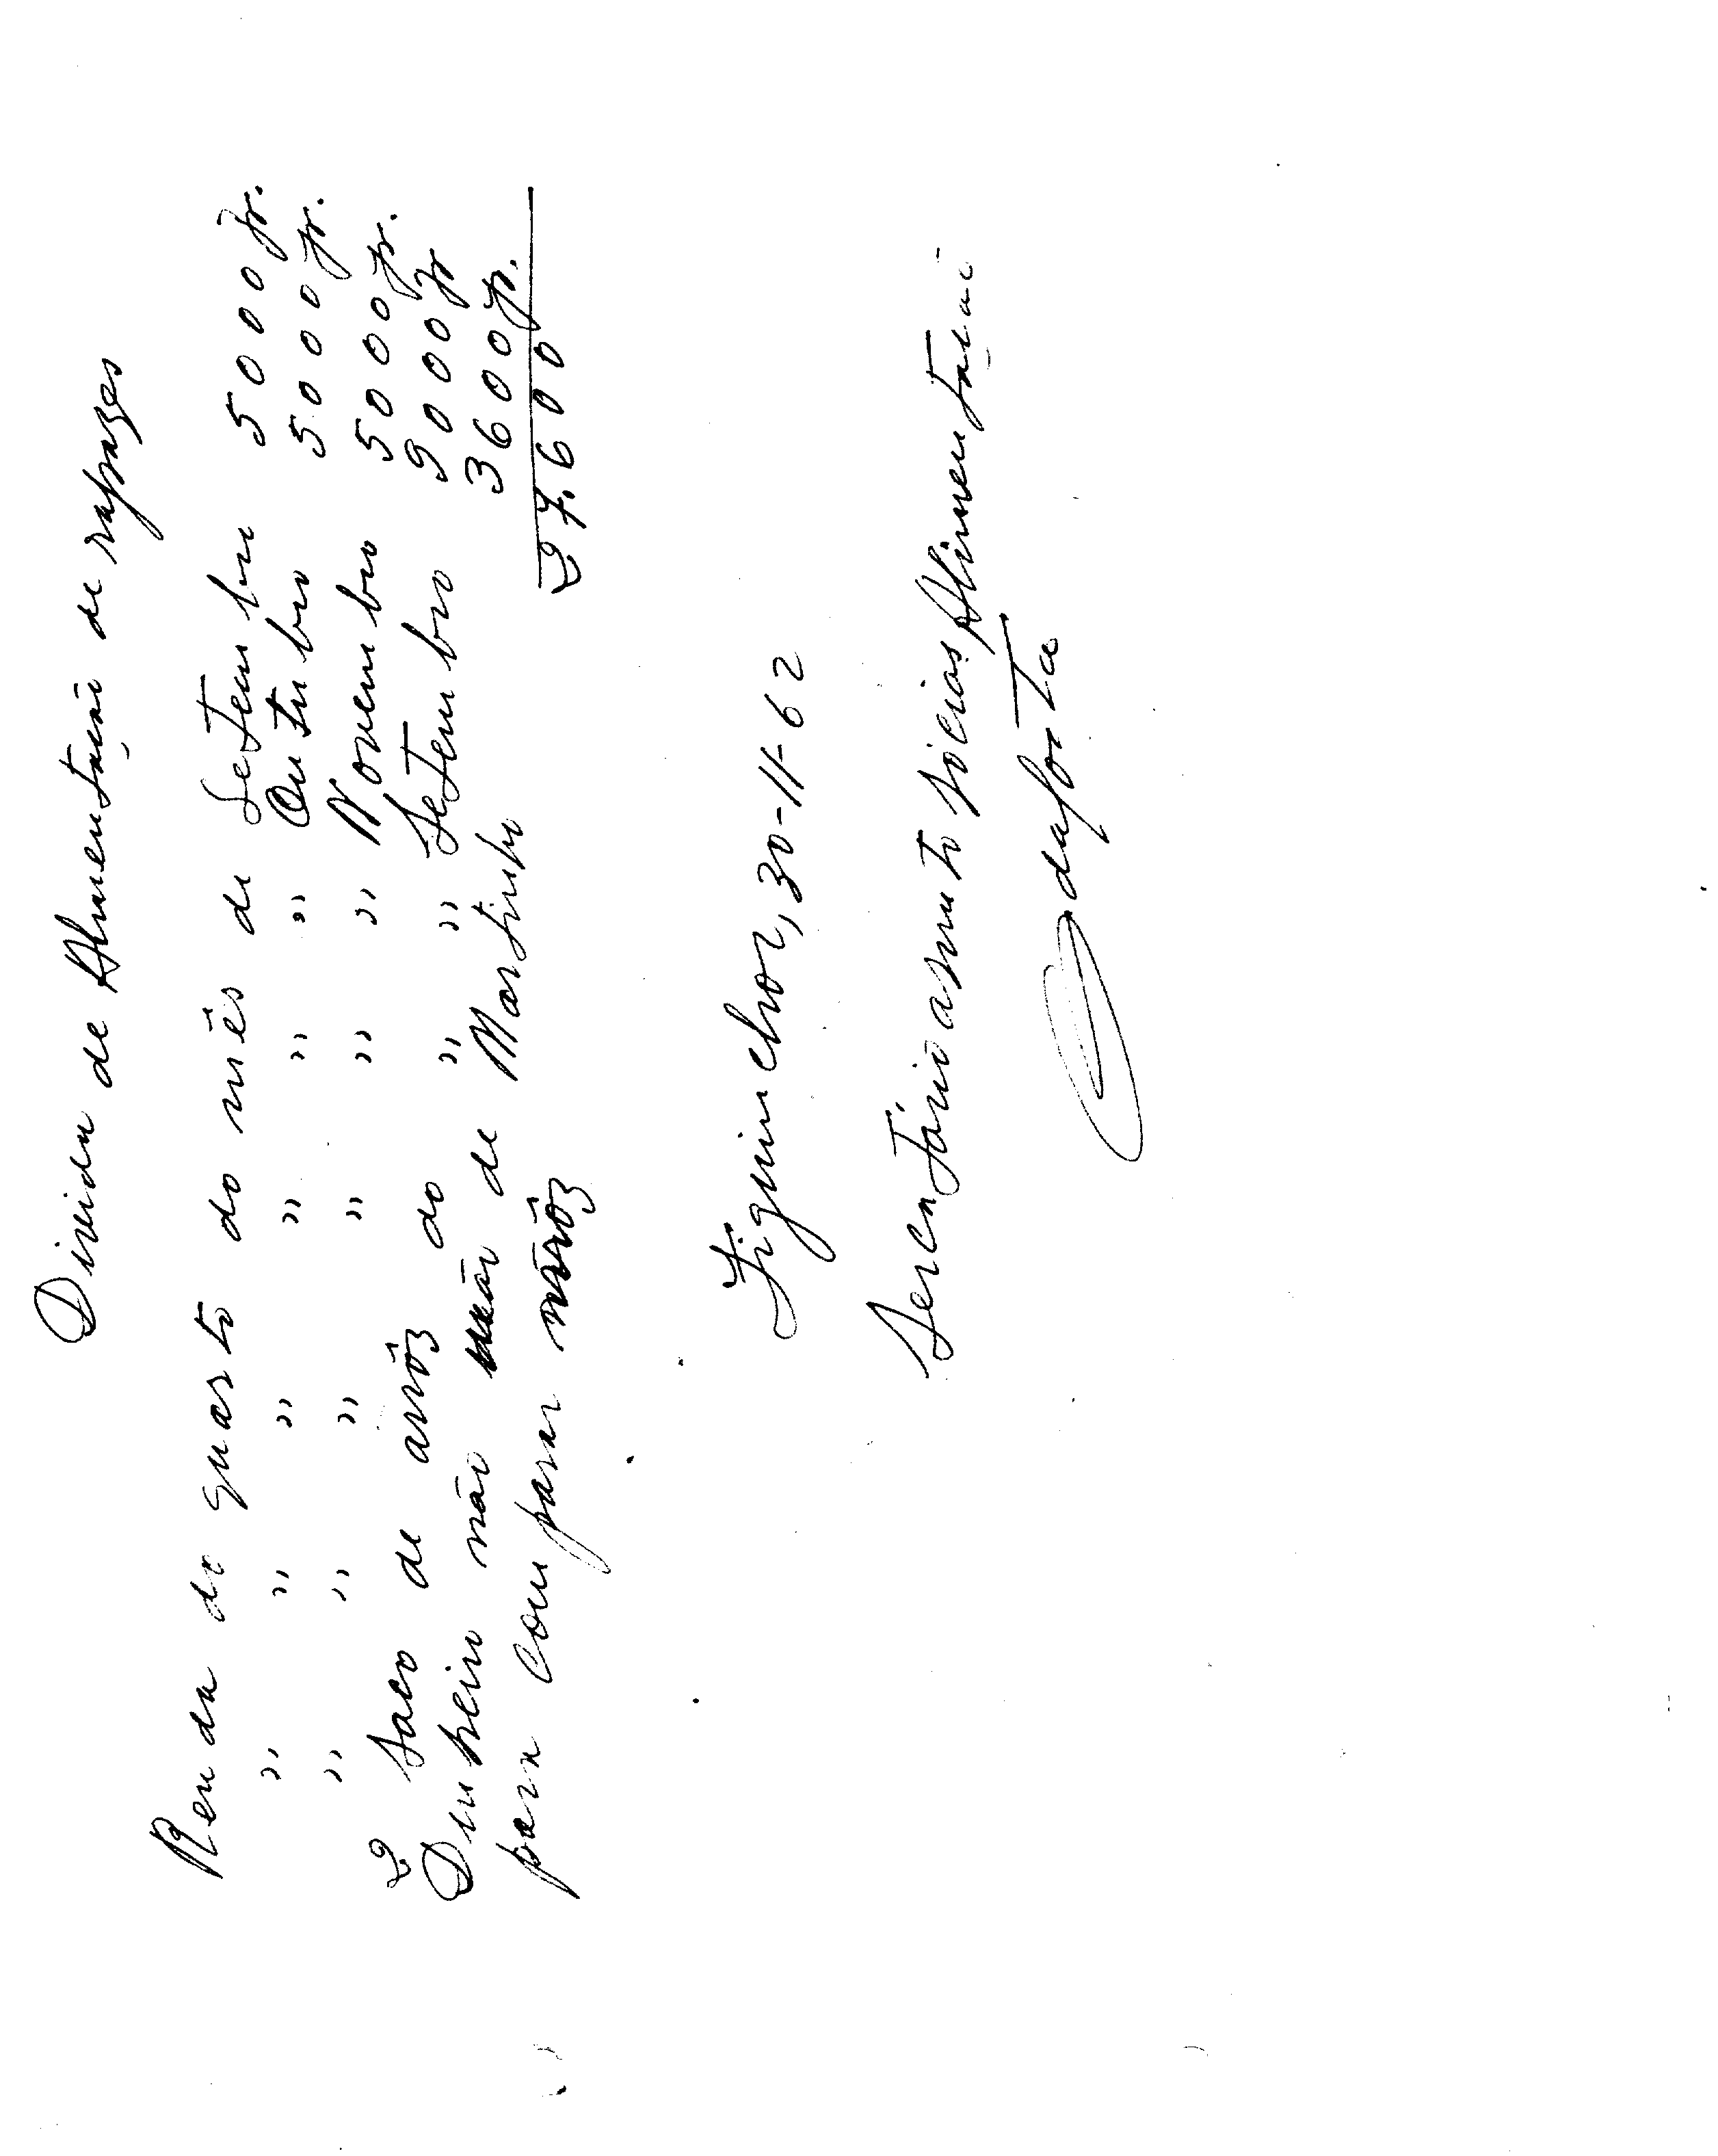 Divida de Alimentação de rapazes
Renda do quarto do mês de Setembro 5000 fr.
" " " " " " Outubro 5000 fr.
" " " " " " Novembro 5000 fr.
2 saco de arrôz do " " Setembro 9000 fr
Dinheiro não mão de Martinho 3600 fr.
para compara arrôz 27.600
Ziguinchor, 30-11-62
Sercretário asunto sociais Alimentação
dafota